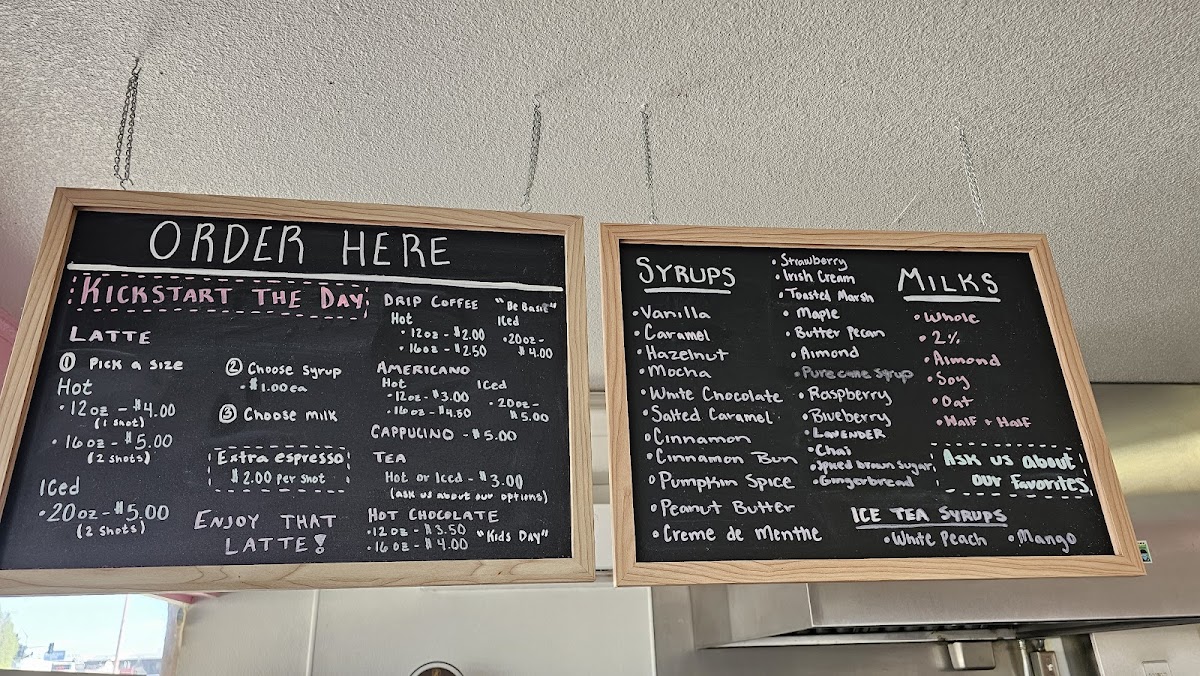 ORDER HERE
KICKSTART THE DAY
LATTE
① PICK A SIZE
HOT
• 12oz - $4.00
(1 shot)
• 16oz - $5.00
(2 shots)
ICED
• 20oz - $5.00
(2 shots)
② Choose syrup
• $1.00 ea
③ Choose milk
Extra espresso
$2.00 per shot
ENJOY THAT
LATTE!
DRIP COFFEE
Hot
• 12oz - $2.00
• 16oz - $2.50
"Be Basic"
Iced
• 20oz -
$4.00
AMERICANO
Hot
• 12oz - $3.00
• 16oz - $4.50
Iced
• 20oz -
$5.00
CAPPUCINO - $5.00
TEA
Hot or Iced - $3.00
(ask us about our options)
HOT CHOCOLATE
• 12oz - $3.50
• 16oz - $4.00
"Kids Day"
SYRUPS
• Vanilla
• Caramel
• Hazelnut
• Mocha
• White Chocolate
• Salted Caramel
• Cinnamon
• Cinnamon Bun
• Pumpkin Spice
• Peanut Butter
• Creme de Menthe
• Strawberry
• Irish Cream
• Toasted Marsh
• Maple
• Butter Pecan
• Almond
• Pure cane syrup
• Raspberry
• Blueberry
• LAVENDER
• Chai
• Spiced Brown Sugar
• Gingerbread
MILKS
• Whole
• 2%
• Almond
• Soy
• Oat
• Half + Half
Ask us about
our favorites
ICE TEA SYRUPS
• White Peach
• Mango